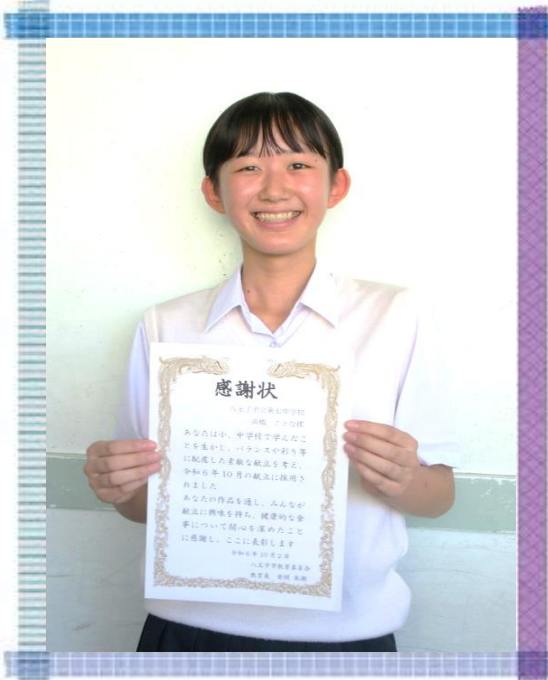 感謝状
八王子市立第七中学校
あなたは小、中学校で学んだこ
とを生かし、バランスや彩り等
に配慮した素敵な献立を考え、
令和6年10月の献立に採用さ
れました
あなたの作品を通し、みんなが
献立に興味を持ち、健康的な食
事について関心を深めたこと
に感謝し、ここに表彰します
令和6年10月2日
八王子市教育委員会
教育長